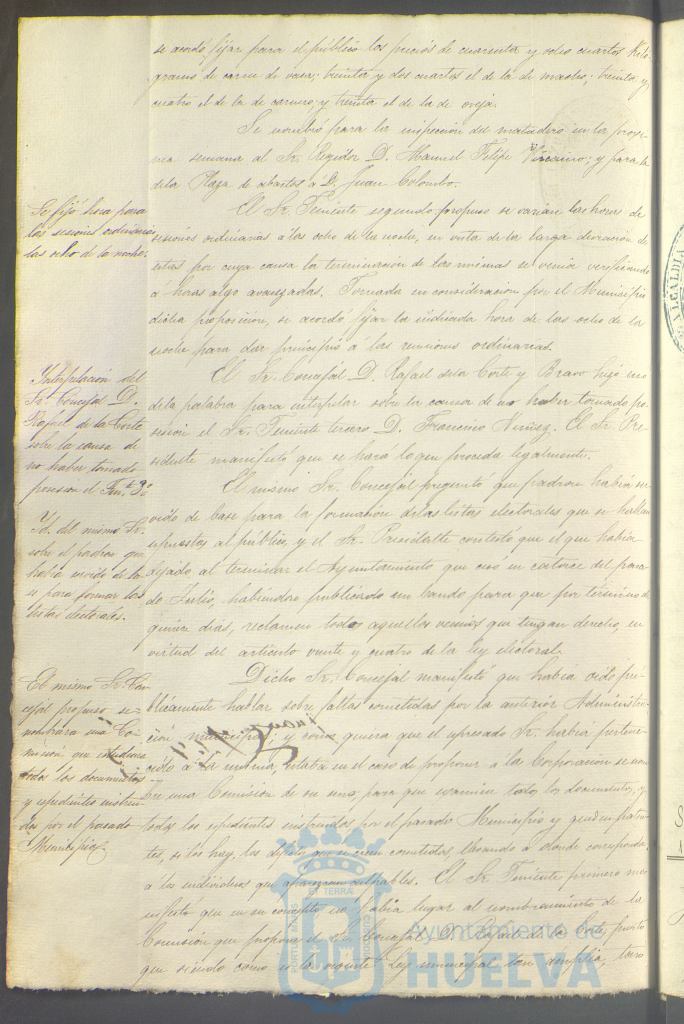 se acordó fijar para el público los precios de cuarenta y ocho cuartos Kiló-
gramo de carne de vaca; treinta y dos cuartos el de la de macho; treinta y
cuatro el de la de carnero y treinta el de la de oveja.
Se nombró para la inspección del matadero en la proxi-
ma semana al Sr. Regidor D. Manuel Felipe Vizcaino; y para la
de la Plaza de abastos a D. Juan Colombo.
Se fijó hora para
las sesiones ordinarias
las ocho de la noche.
El Sr. Teniente segundo propuso se varien las horas de
sesiones ordinarias á las ocho de la noche, en vista de la larga duración de
estas por cuya causa la terminación de las mismas se venia verificando
á horas algo avanzadas. Tomada en consideración por el Municipio
dicha proposición, se acordó fijar la indicada hora de las ocho de la
noche para dar principio á las reuniones ordinarias.
Interpelación del
Sr. Concejal D.
Rafael de la Corte
sobre la causa de
no haber tomado
posesion el Tnte. 3º
El Sr. Concejal D. Rafael de la Corte y Bravo hizo uso
de la palabra para interpelar sobre la causa de no haber tomado po-
sesion el Sr. Teniente tercero D. Francisco Nuñez. El Sr. Pre-
sidente manifestó que se hara lo que proceda legalmente.
Yd. del mismo Sr.
sobre el padron que
habia servido de ba-
se para formar las
listas electorales.
El mismo Sr. Concejal preguntó que padron habia ser-
vido de base para la formacion de las listas electorales que se hallan
expuestas al público, y el Sr. Presidente contestó que el que habia
dejado al terminar el Ayuntamiento que cesó en catorce del pasa-
do Julio, habiendose publicado un bando para que por término de
quince dias, reclamen todos aquellos vecinos que tengan derecho, en
virtud del articulo veinte y cuatro de la ley electoral.
El mismo Sr. Con-
cejal propuso se
nombrara una Co-
mision que
todos los documentos
y espedientes instrui-
dos por el pasado
Municipio
Dicho Sr. Concejal manifestó que habia oido pú-
blicamente hablar sobre faltas cometidas por la anterior Administra-
cion municipal; y como quiera que el espresado Sr. habia pertene-
cido á la misma, estaba en el caso de proponer a la Corporación se nom-
bre una Comision de su seno, para que examine todos los documentos, y
todos los espedientes instruidos por el pasado Municipio y
si los hay, los que cometidos, llevando á donde corresponda
á los individuos que aparezcan culpables. El Sr. Teniente primero ma-
nifestó que en su concepto no habia lugar al nombramiento de la
Comisión que propone el Sr. Concejal D. Rafael de la Corte, puesto
que siendo como es la vigente Ley municipal tan
ALCALDIA
ET TERRAE
Ayuntamiento de
HUELVA